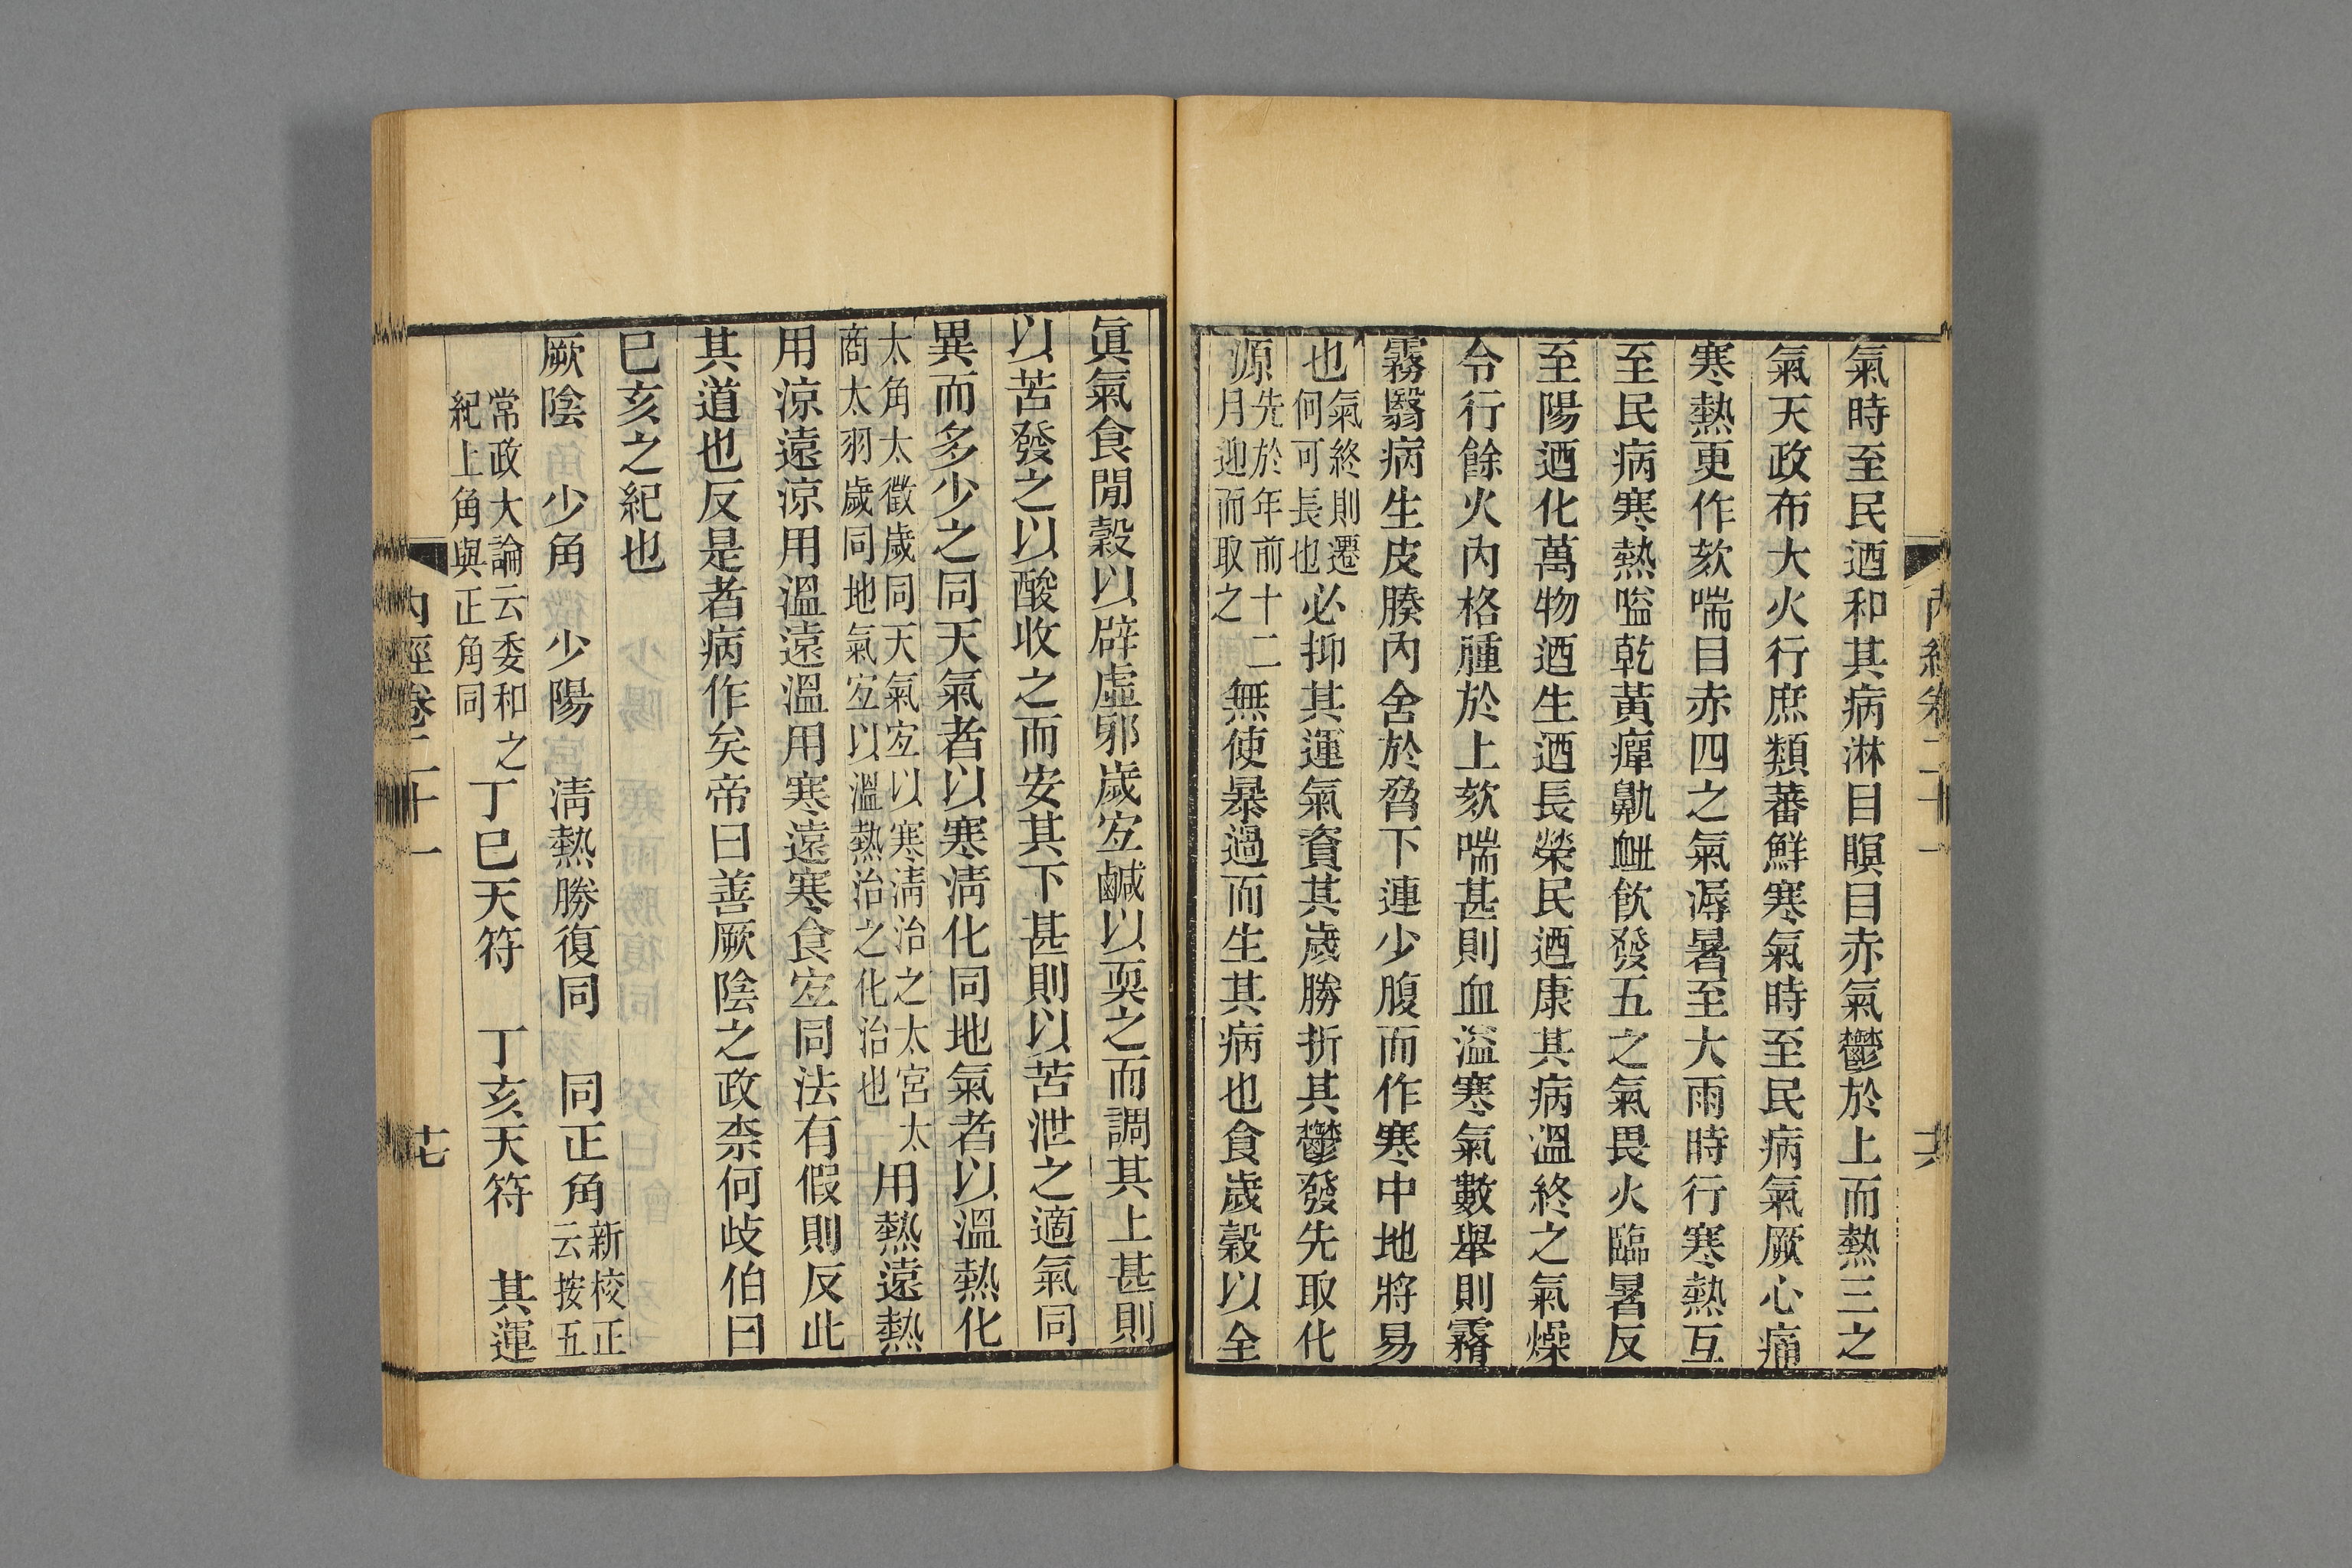 氣時至民迺和其病淋目瞑目赤氣鬱於上而熱三之
氣天政布大火行庶類蕃鮮寒氣時至民病氣厥心痛
寒熱更作欬喘目赤四之氣溽暑至大雨時行寒熱互
至民病寒熱嗌乾黃癉鼽衄飲發五之氣畏火臨暑反
至陽迺化萬物迺生迺長榮民迺康其病溫終之氣燥
令行餘火內格腫於上欬喘甚則血溢寒氣數舉則霿
霧翳病生皮腠內舍於脅下連少腹而作寒中地將易
也氣終則遷何可長也必抑其運氣資其歲勝折其鬱發先取化
源先於年前十二月迎而取之無使暴過而生其病也食歲穀以全
眞氣食閒穀以辟虛邪歲宐鹹以耎之而調其上甚則
以苦發之以酸收之而安其下甚則以苦泄之適氣同
異而多少之同天氣者以寒淸化同地氣者以溫熱化
太角太徵歲同天氣宐以寒淸治之太宮太商太羽歲同地氣宐以溫熱治之化治也用熱遠熱
用涼遠涼用溫遠溫用寒遠寒食宐同法有假則反此
其道也反是者病作矣帝曰善厥陰之政柰何歧伯曰
巳亥之紀也
厥陰　少角　少陽　淸熱勝復同　同正角新校正云按五
常政大論云委和之紀上角與正角同丁巳天符　丁亥天符　其運
內經卷二十一
十七